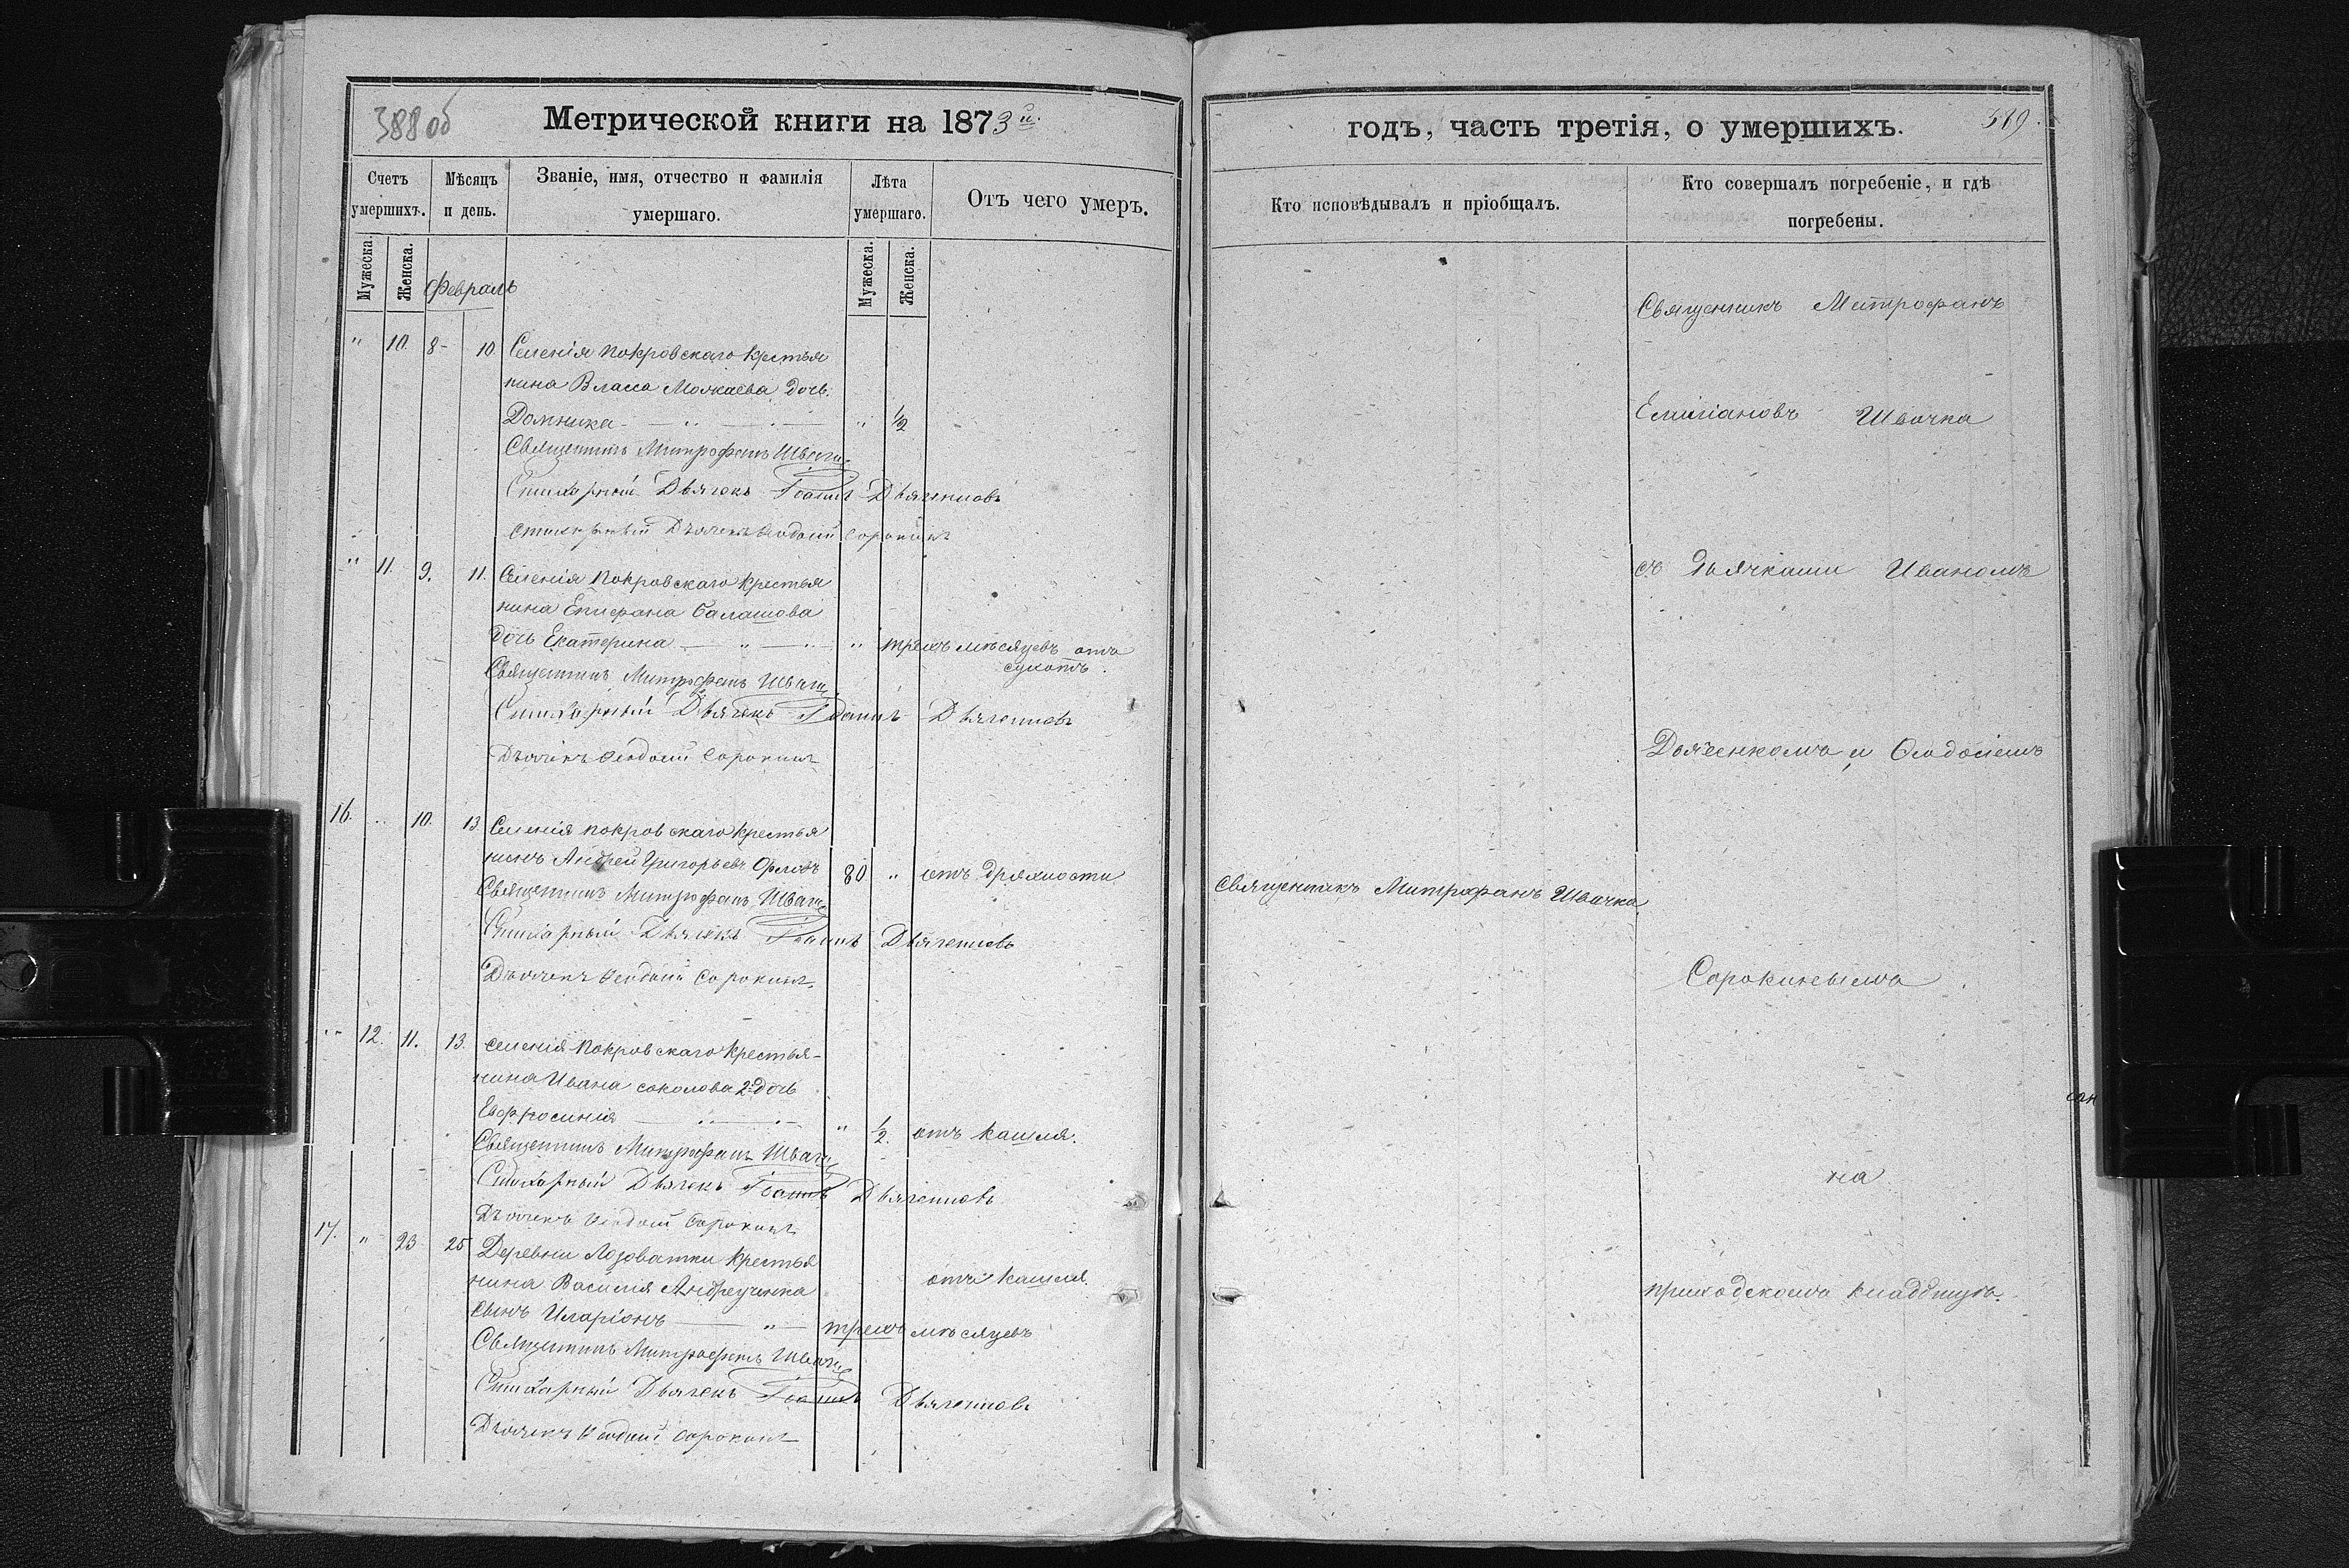 388 об
Метрической книги на 1873 й.
Счетъ умершихъ.
Мѣсяцъ и день.
Званіе, имя, отчество и фамилія умершаго.
Лѣта умершаго.
Отъ чего умеръ.
Мужеска.
Женска.
Февраль
Мужеска.
Женска.
" 10. 8- 10. Селенія Покровскаго крестья
нина Власа Можаева дочь
Домника " ½
Священникъ Митрофанъ Швачка
Стихарный Дьячекъ Іоаннъ Дьяченковъ
Стихарный Дьячекъ Феодосій Сорокинъ
" 11. 9. 11. Селенія Покровскаго крестья
нина Епифана Балашова
дочь Екатерина " трехъ мѣсяцевъ отъ
сухотъ.
Священникъ Митрофанъ Швачка
Стихарный Дьячекъ Іоаннъ Дьяченковъ
Дьячекъ Феодосій Сорокинъ
16. .. 10. 13 Селенія Покровскаго крестья
нинъ Андрей Григорьевъ Орловъ 80 " отъ дряхлости
Священникъ Митрофанъ Швачка
Стихарный Дьячекъ Іоаннъ Дьяченковъ
Дьячекъ Феодосій Сорокинъ.
" 12. 11. 13. Селенія Покровскаго крестья-
нина Ивана Соколова 2я дочь
Евфросинія " ½. отъ кашля.
Священникъ Митрофанъ Швачка
Стихарный Дьячекъ Іоаннъ Дьяченковъ
Дьячекъ Феодосій Сорокинъ
17. " 23 25 Деревни Лозоватки крестья
нина Василія Андреученка отъ кашля.
сынъ Иларіонъ " трехъ мѣсяцевъ
Священникъ Митрофанъ Швачка
Стихарный Дьячекъ Іоаннъ Дьяченковъ
Дьячекъ Феодосій Сорокинъ
годъ, часть третія, о умершихъ.
389.
Кто исповѣдывалъ и пріобщалъ.
Кто совершалъ погребеніе, и гдѣ погребены.
Священникъ Митрофанъ
Емиліановъ Швачка
съ дьячками Иваномъ
Дьяченкомъ и Феодосіемъ
Священникъ Митрофанъ Швачка
Сорокинымъ
на
приходскомъ кладбищѣ.